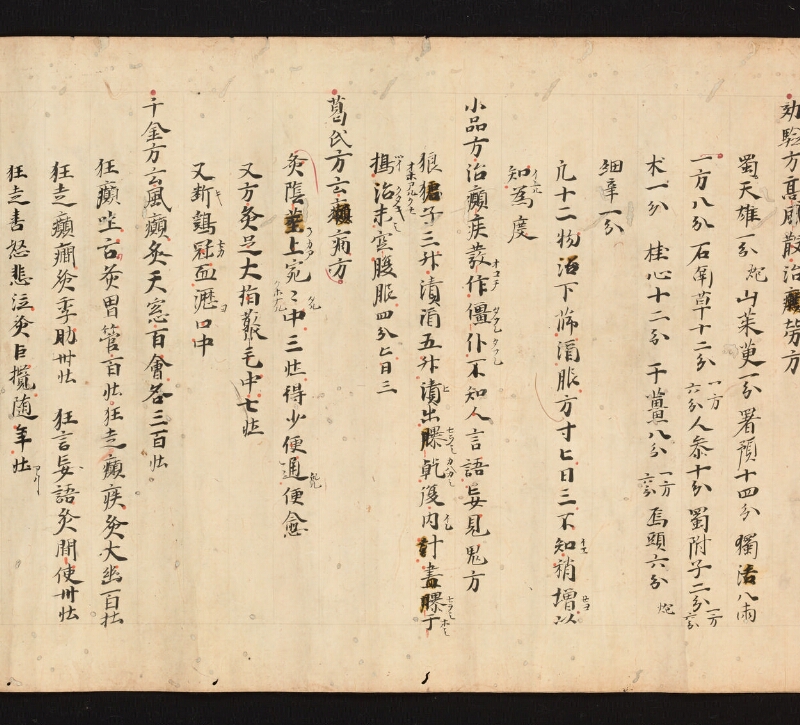 効驗方高順散治癲勞方
蜀天雄一分炮山茱萸一分署預十四分獨活八兩
一方八分石南草十二分一方六分人参十分蜀附子二分一方六分
朮一分 桂心十二分 干薑八分一方六分烏頭六分炮
細辛一分
凢十二物治下篩酒服方寸匕日三不知稍增以
知為度
小品方治癲疾發作僵仆不知人言語妄見鬼方
狼毒子三升漬酒五升漬出曝乾復内汁盡曝干
搗治末空腹服四分匕日三
葛氏方云癲病方
灸陰莖上宛〻中三壮得少便通便愈
又方灸足大指聚毛中七壮
又斬鷄冠血瀝口中
千金方云風癲灸天窓百會各三百壮
狂癲哭泣灸胃管百壮狂走癲疾灸大幽百壮
狂走癲癎灸季肋卅壮 狂言妄語灸間使卅壮
狂走喜怒悲泣灸巨攬随年壮